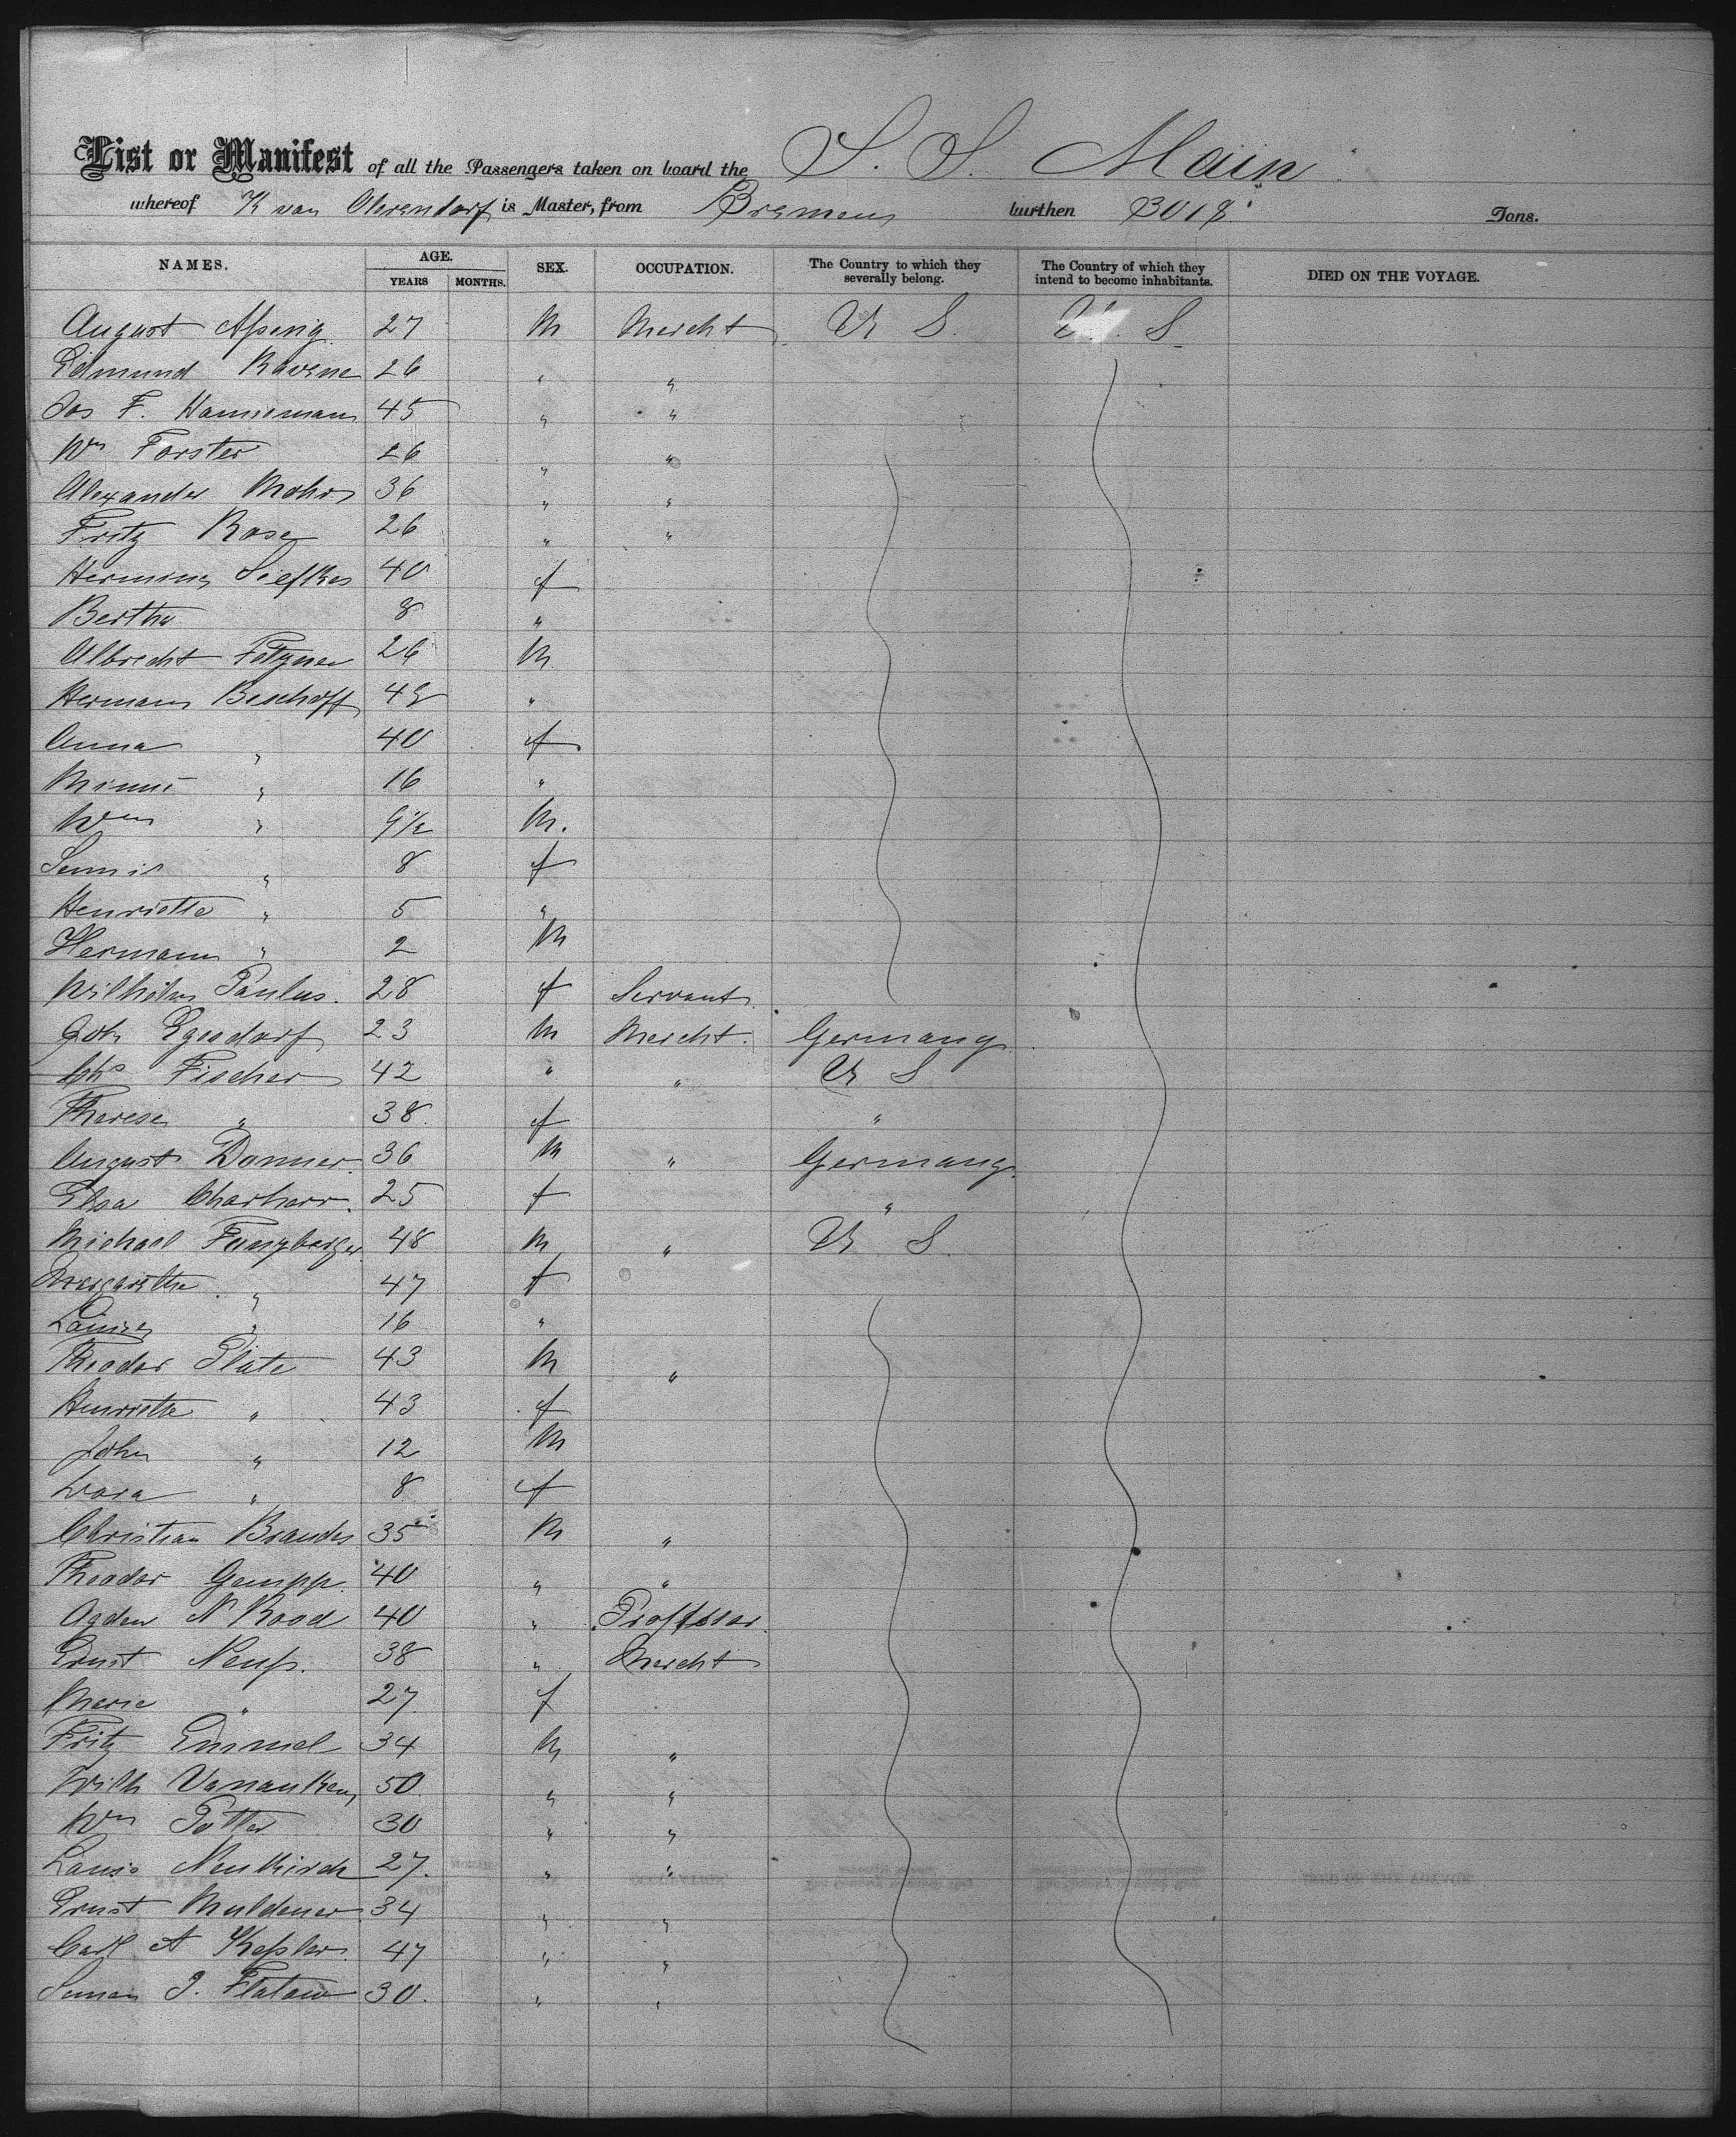 List or Manifest of all the Passengers taken on board the S. S. Main
whereof K van Oterendorf is Master, from Bremen burthen 3018 Tons.
NAMES. AGE. YEARS MONTHS. SEX. OCCUPATION. The Country to which they severally belong. The Country of which they intend to become inhabitants. DIED ON THE VOYAGE.
August 27 M Mercht U S U. S
Edmund Ravene 26 " "
Jos F. Hanneman 45 " "
Wm Forster 26 " "
Alexander Mohr 36 " "
Fritz Rose 26 " "
Hermine Siefkes 40 f
Bertha 8 "
Albrecht 26 M
Hermann Bischoff 49 "
Anna " 40 f
Minni " 16 "
Wm " 9½ M.
" 8 f
Henriette " 5 "
Hermann " 2 M
Wilhelm Paulus. 28 f Servant
Joh Egesdorf 23 M Mercht. Germany
Chs Fischer 42 " " U S
Therese " 38 f "
August Donner 36 M " Germany
Elsa 25 f "
Michael 48 M " U S
Margarethe " 47 f
Louise " 16 "
Theodor Plate 43 M "
Henriette " 43 f
John " 12 M
Dora " 8 f
Christian Brandes 35 M "
Theodor Gempp. 40 " "
Ogden N Rood 40 " Professor
Ernst 38 " Mercht
Marie " 27 f
Fritz Emmel 34 M "
Wilh Vanauken 50 " "
Wm Potter 30 " "
Louis Neukirch 27. " "
Ernst Muldener 34 " "
Carl A Keßler 47 " "
J. Flatau 30. " "